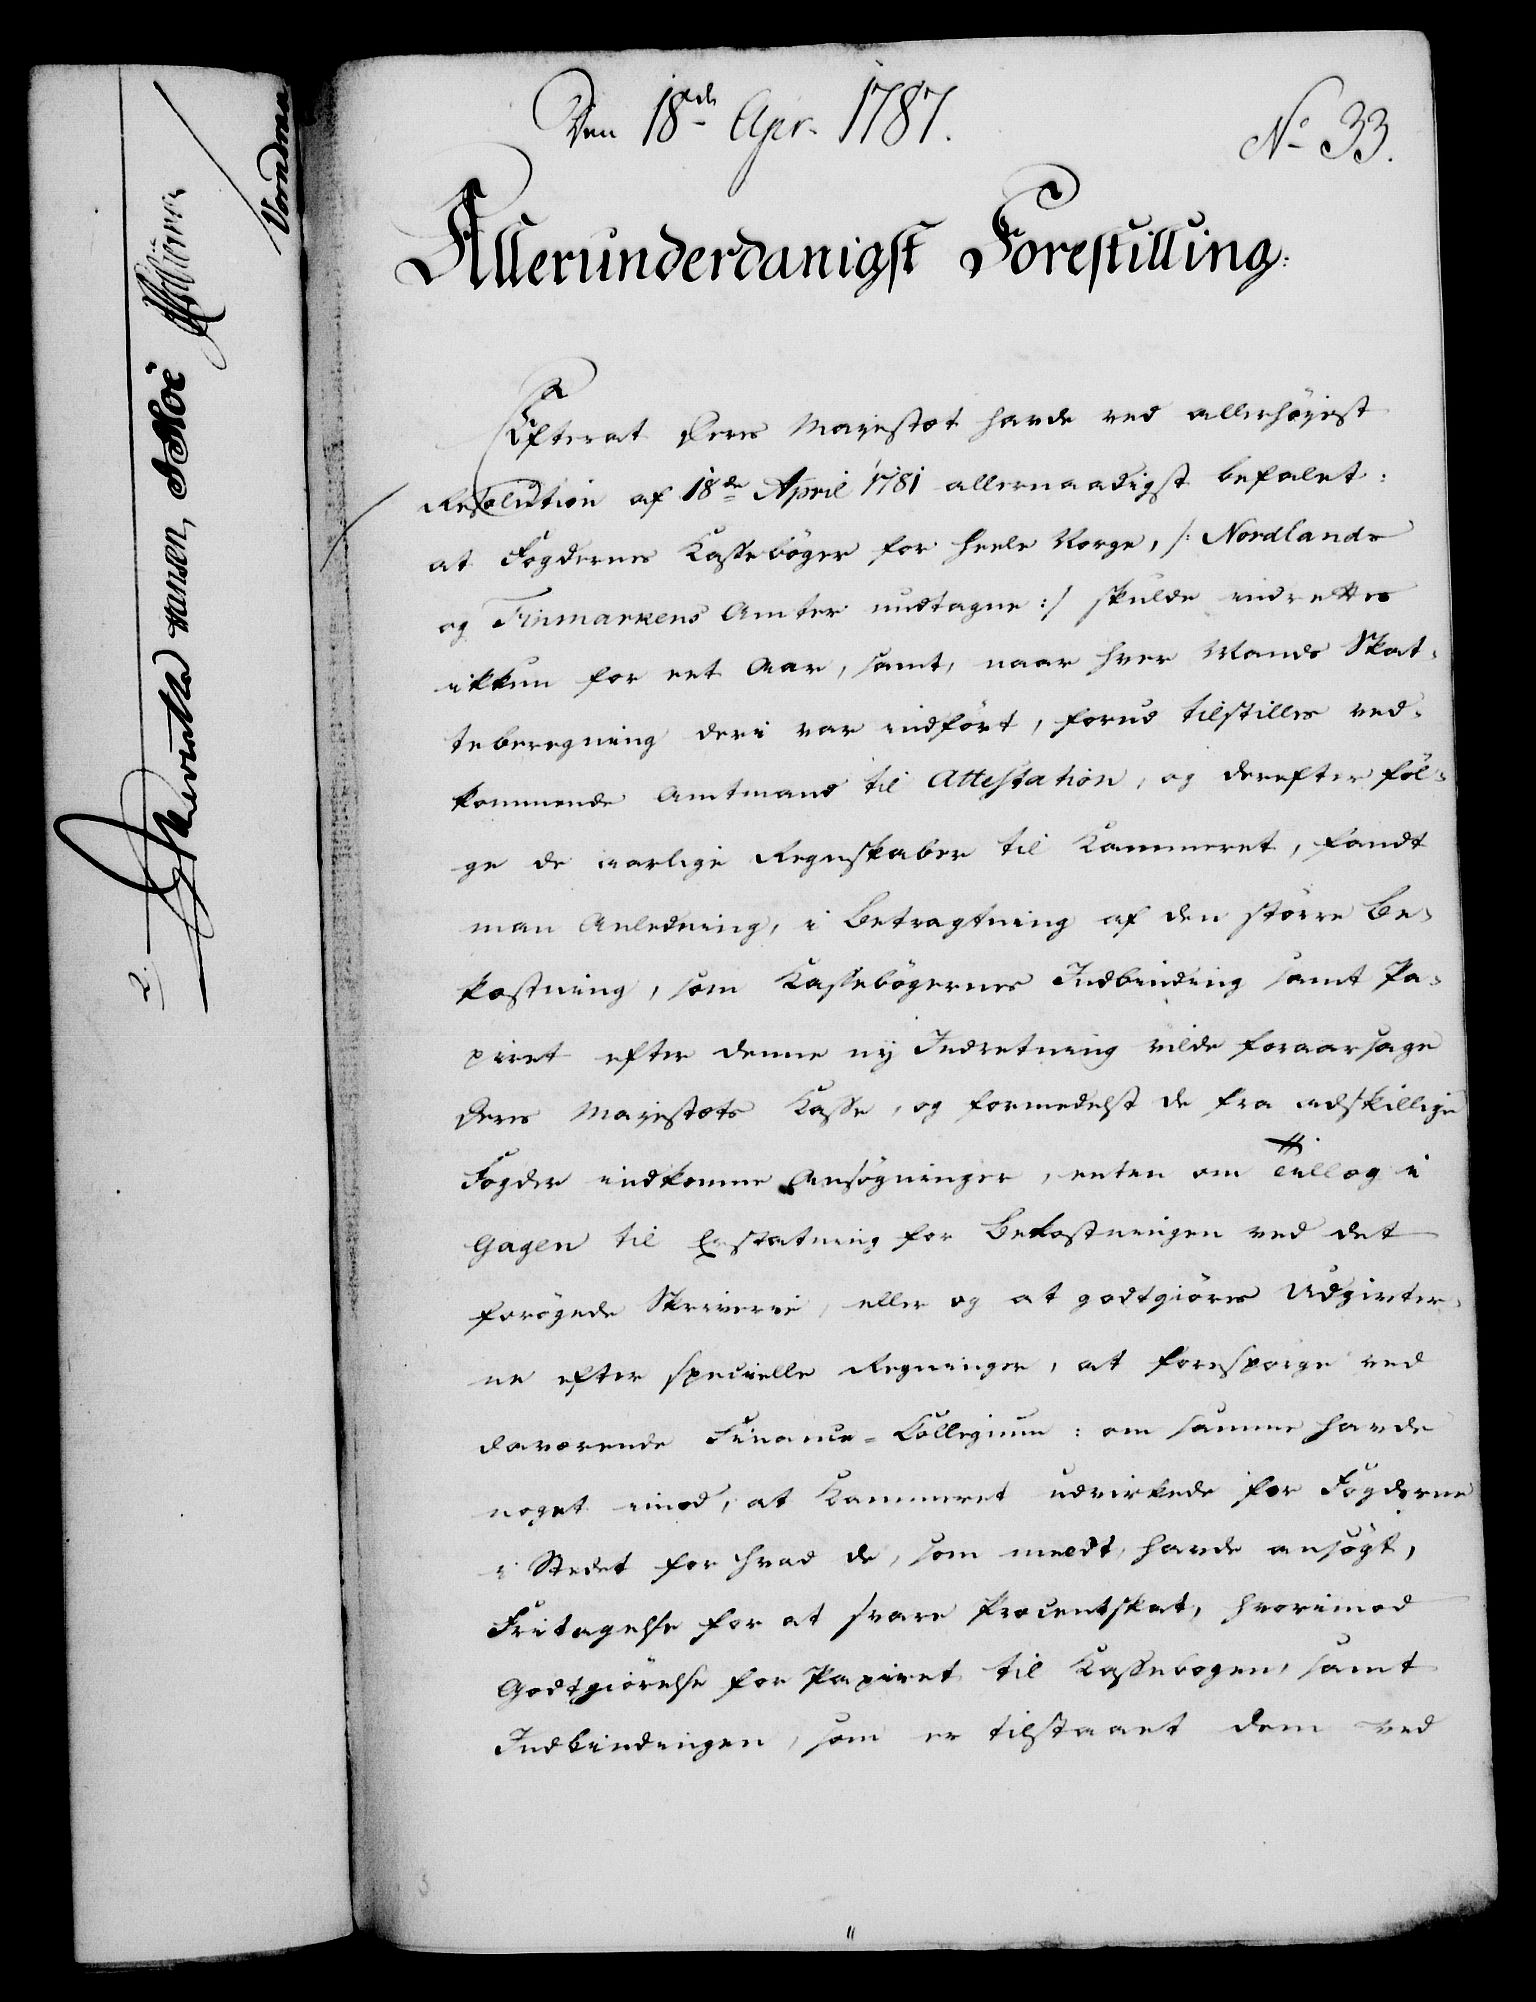 Den 18de Apr. 1787.
No 33.
Allerunderdanigst Forestilling:
Efterat Deres Majestæt havde ved allerhöyest
Resolution af 18de April 1781 allernaadigst befalet:
at Fogdernes Kassebøger for heele Norge, /: Nordlands
og Finmarkens Amter undtagne :/ skulde indrettes
ikkun for eet Aar, samt, naar hver Mands Skat-
teberegning deri var indført, forud tilstilles ved-
kommende Amtmand til Attestation, og derefter föl-
ge de aarlige Regnskaber til Kammeret, fandt
man Anledning, i Betragtning af den større Be-
kostning, som Kassebøgernes Indbinding samt Pa-
piret efter denne ny Indretning vilde foraarsage
Deres Majestæts Kasse, og formedelst de fra adskillige
Fogder indkomne Ansøgninger, enten om Tillæg i
Gagen til Erstatning for Bekostningen ved det
forøgede Skriverie, eller og at godtgiøres Udgivter-
ne efter specielle Regninger, at forespørge ved
daværende Finance-Collegium: om samme havde
noget imod, at Kammeret udvirkede for Fogderne
i Stedet for hvad de, som meldt, havde ansøgt,
Fritagelse for at svare Procentskat, hvorimod
Godtgiørelse for Papiret til Kassebogen, samt
Indbindingen, som er tilstaaet dem ved